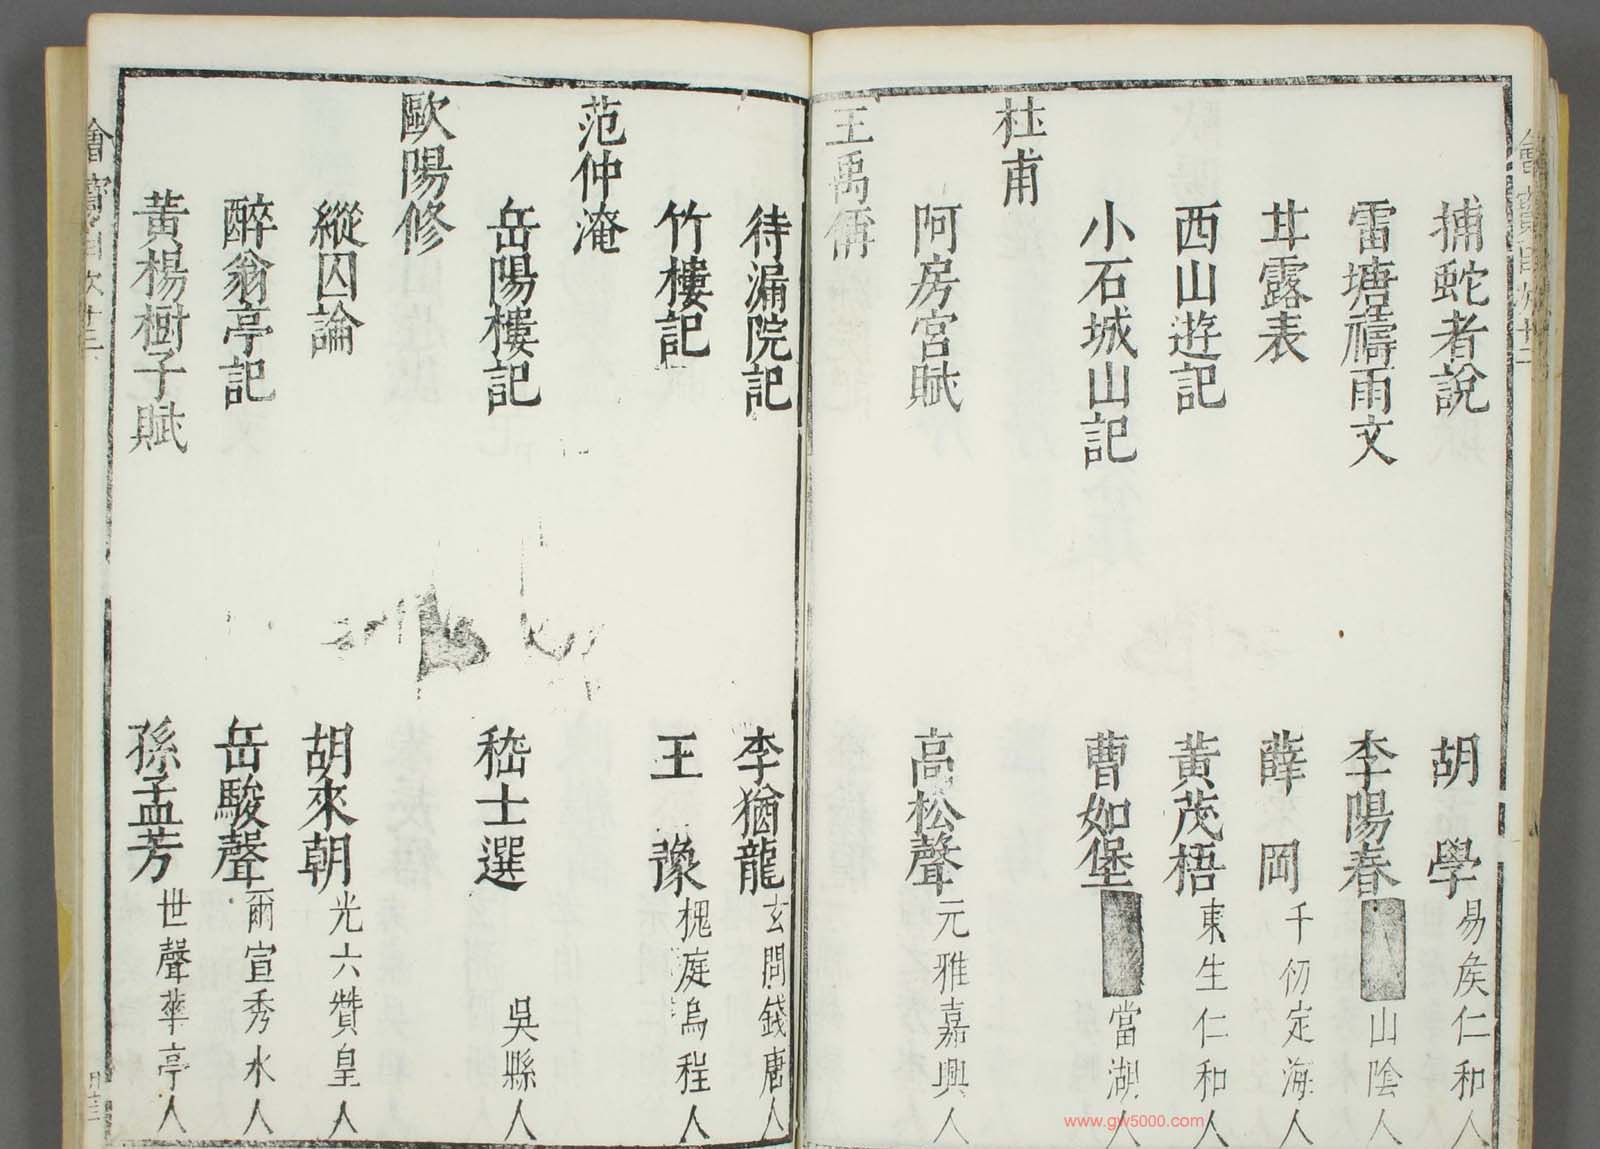 捕蛇者說 胡學 易矦仁和人
雷塘禱雨文 李陽春 山陰人
甘露表 薛岡 千仞定海人
西山遊記 黃茂梧 東生仁和人
小石城山記 曹如堡 當湖人
杜甫
阿房宮賦 高松聲 元雅嘉興人
王禹偁
待漏院記 李猶龍 玄問錢唐人
竹樓記 王豫 槐庭烏程人
范仲淹
岳陽樓記 嵇士選 吳縣人
歐陽修
縱囚論 胡來朝 光六贊皇人
醉翁亭記 岳駿聲 爾宣秀水人
黃楊樹子賦 孫孟芳 世聲華亭人
www.gw5000.com